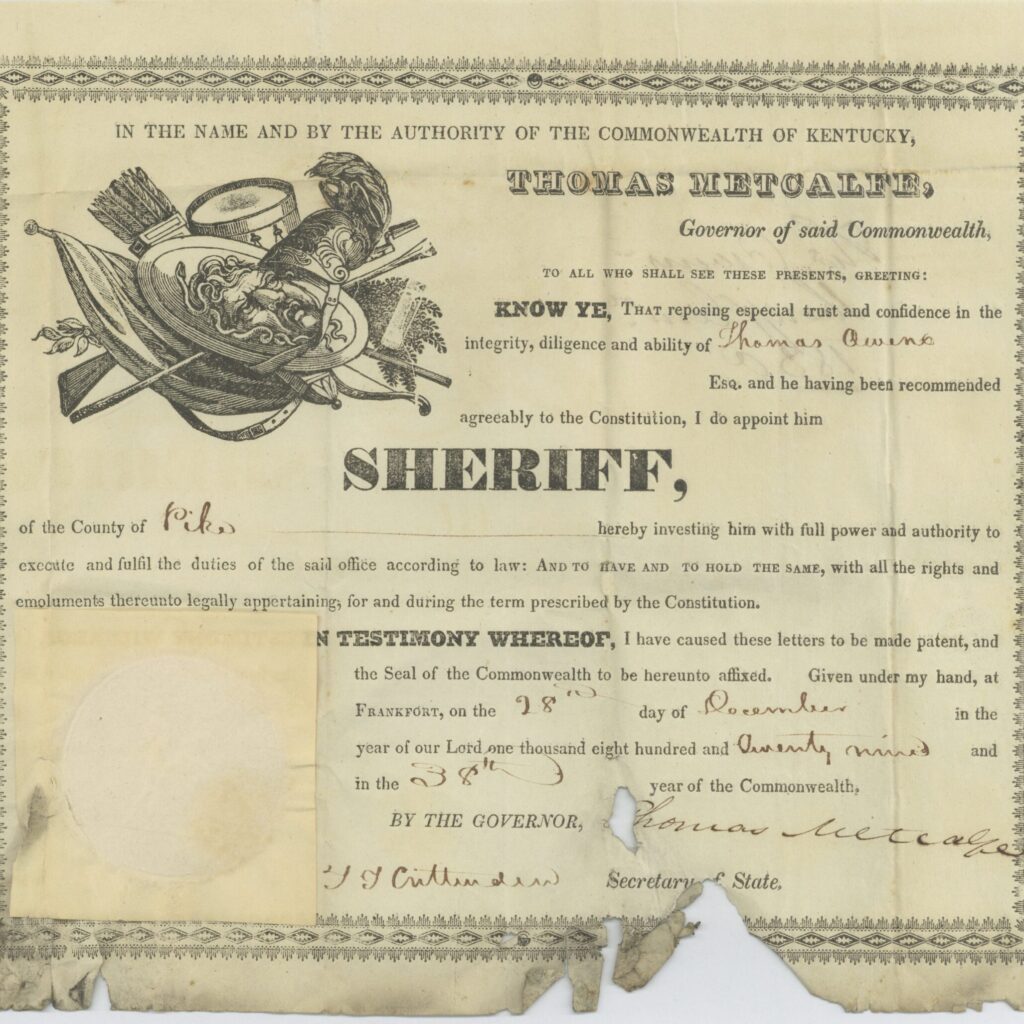 IN THE NAME AND BY THE AUTHORITY OF THE COMMONWEALTH OF KENTUCKY,
THOMAS METCALFE,
Governor of said Commonwealth,
TO ALL WHO SHALL SEE THESE PRESENTS, GREETING:
KNOW YE, THAT reposing especial trust and confidence in the
integrity, diligence and ability of Thomas Owens
ESQ. and he having been recommended
agreeably to the Constitution, I do appoint him
SHERIFF,
of the County of Pike hereby investing him with full power and authority to
execute and fulfil the duties of the said office according to law: AND TO HAVE AND TO HOLD THE SAME, with all the rights and
emoluments thereunto legally appertaining, for and during the term prescribed by the Constitution.
N TESTIMONY WHEREOF, I have caused these letters to be made patent, and
the Seal of the Commonwealth to be hereunto affixed. Given under my hand, at
FRANKFORT, on the 28th day of December in the
year of our Lord one thousand eight hundred and twenty nine and
in the 38th year of the Commonwealth,
BY THE GOVERNOR, Thomas Metcalfe
Crittenden Secretary of State.